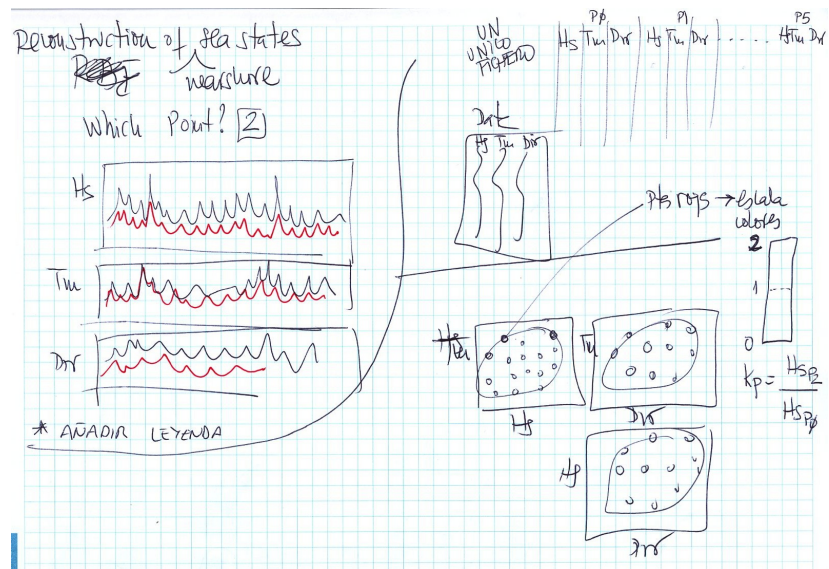 Reconstruction of sea states
nearshore
Which Point? 2
Hs
Tm
Dir
* AÑADIR LEYENDA
UN
UNICO
FICHERO
PØ
P1
P5
Hs Tm Dir Hs Tm Dir ...... Hs Tm Dir
Date
Hs Tm Dir
Pts rojos → escala
colores
2
1
0
Kp = HsP2
HsPØ
Tm
Hs
Tm
Dir
Hs
Dir